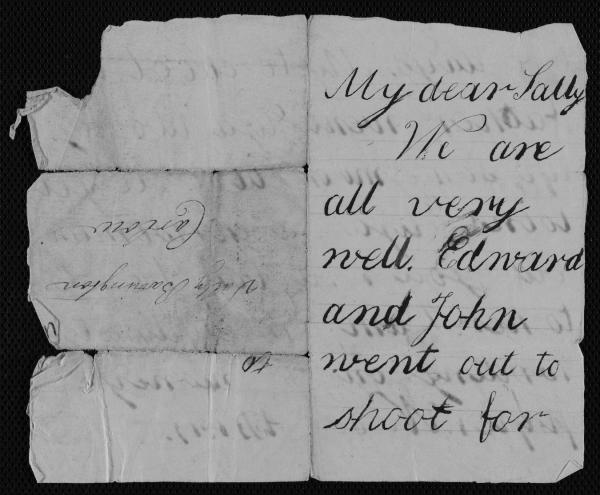 My dear Sally
We are
all very
well. Edward
and John
went out to
shoot for
to
Sally Barrington
Carlow